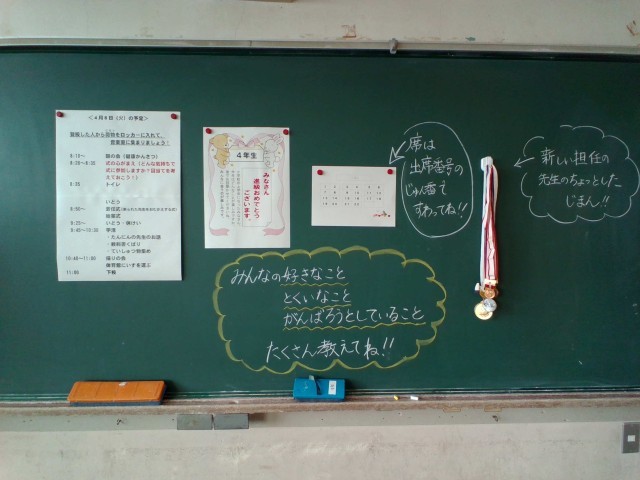 <４月８日（火）の予定>
登校した人から荷物をロッカーに入れて、
教室に集まりましょう！
8:35 トイレ
いどう
着任式
始業式
9:25～ いどう・休けい
9:40～10:30 学活
・たんにんの先生のお話
・教科書くばり
・ていしゅつ物集め
10:40～11:00 帰りの会
11:00 下校
４年生
みなさん
進級おめでとう
ございます
席は
出席番号の
じゅん番で
すわってね!!
新しい担任の
先生のちょっとした
じまん!!
みんなの好きなこと
とくいなこと
がんばろうとしていること
たくさん教えてね!!